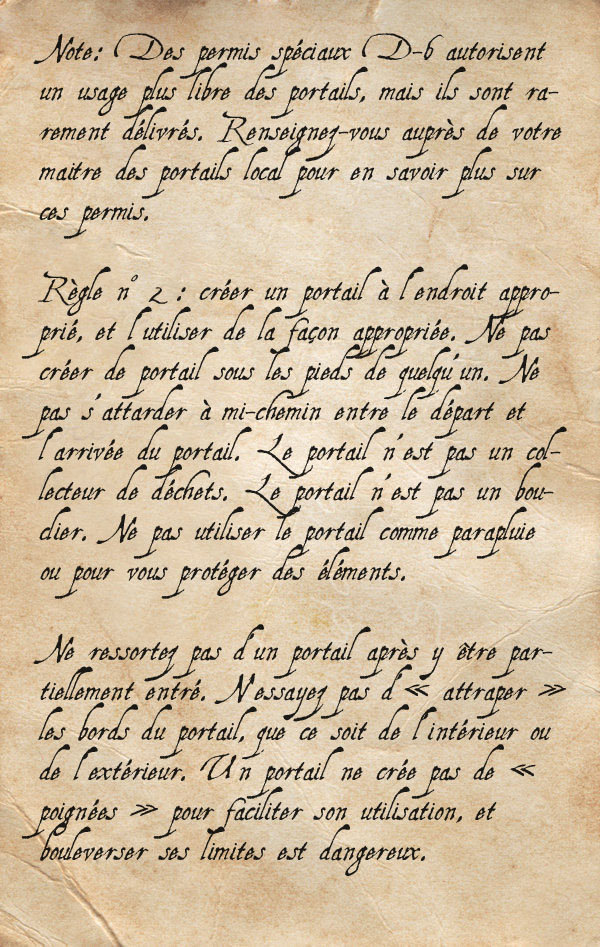 Note: Des permis spéciaux D-6 autorisent
un usage plus libre des portails, mais ils sont ra-
rement délivrés. Renseignez-vous auprès de votre
maitre des portails local pour en savoir plus sur
ces permis.
Règle n° 2 : créer un portail à l'endroit appro-
prié, et l'utiliser de la façon appropriée. Ne pas
créer de portail sous les pieds de quelqu'un. Ne
pas s'attarder à mi-chemin entre le départ et
l'arrivée du portail. Le portail n'est pas un col-
lecteur de déchets. Le portail n'est pas un bou-
clier. Ne pas utiliser le portail comme parapluie
ou pour vous protéger des éléments.
Ne ressortez pas d'un portail après y être par-
tiellement entré. N'essayez pas d'« attraper »
les bords du portail, que ce soit de l'intérieur ou
de l'extérieur. Un portail ne crée pas de «
poignées » pour faciliter son utilisation, et
bouleverser ses limites est dangereux.